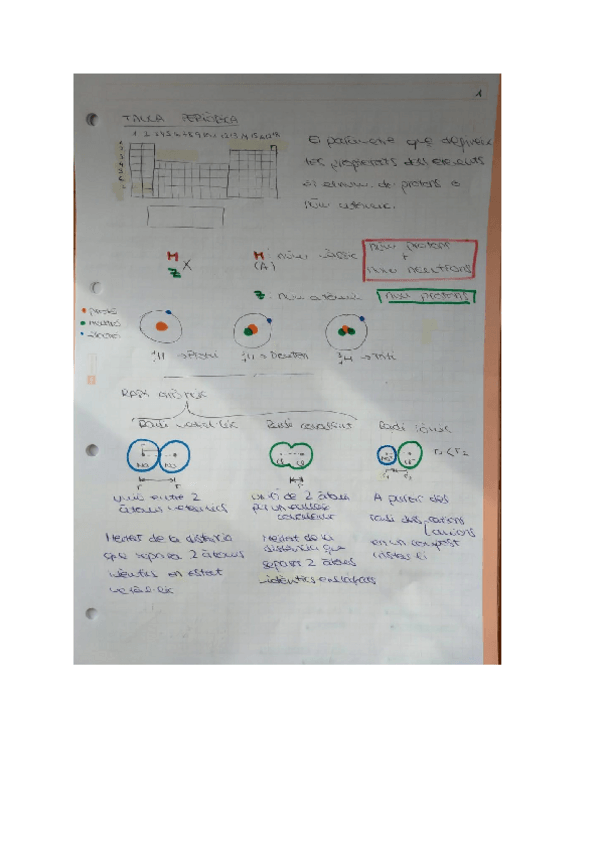 1
TAULA PERIÒDICA
1 2 3 4 5 6 7 8 9 10 11 12 13 14 15 16 17 18
1
2
3
4
5
6
7
El paràmetre que defineix
les propietats dels elements
és el núm. de protons o
núm atòmic.
M
Z X
M: núm màssic
(A)
núm protons
+
núm neutrons
Z: núm atòmic
núm protons
protó
neutró
electró
H → Proti
H → Deuteri
H → Triti
RADI ATÒMIC
Radi metàl·lic
Radi covalent
Radi iònic
Na Na
Cl Cl
Na+ Cl-
r1 < r2
r r
r
r1 r2
unió entre 2
àtoms metàl·lics
unió de 2 àtoms
per un enllaç
covalent
A partir dels
radis dels cations
anions
en un compost
cristal·lí
Meitat de la distància
que separa 2 àtoms
idèntics en estat
metàl·lic
Meitat de la
distància que
separa 2 àtoms
idèntics enllaçats